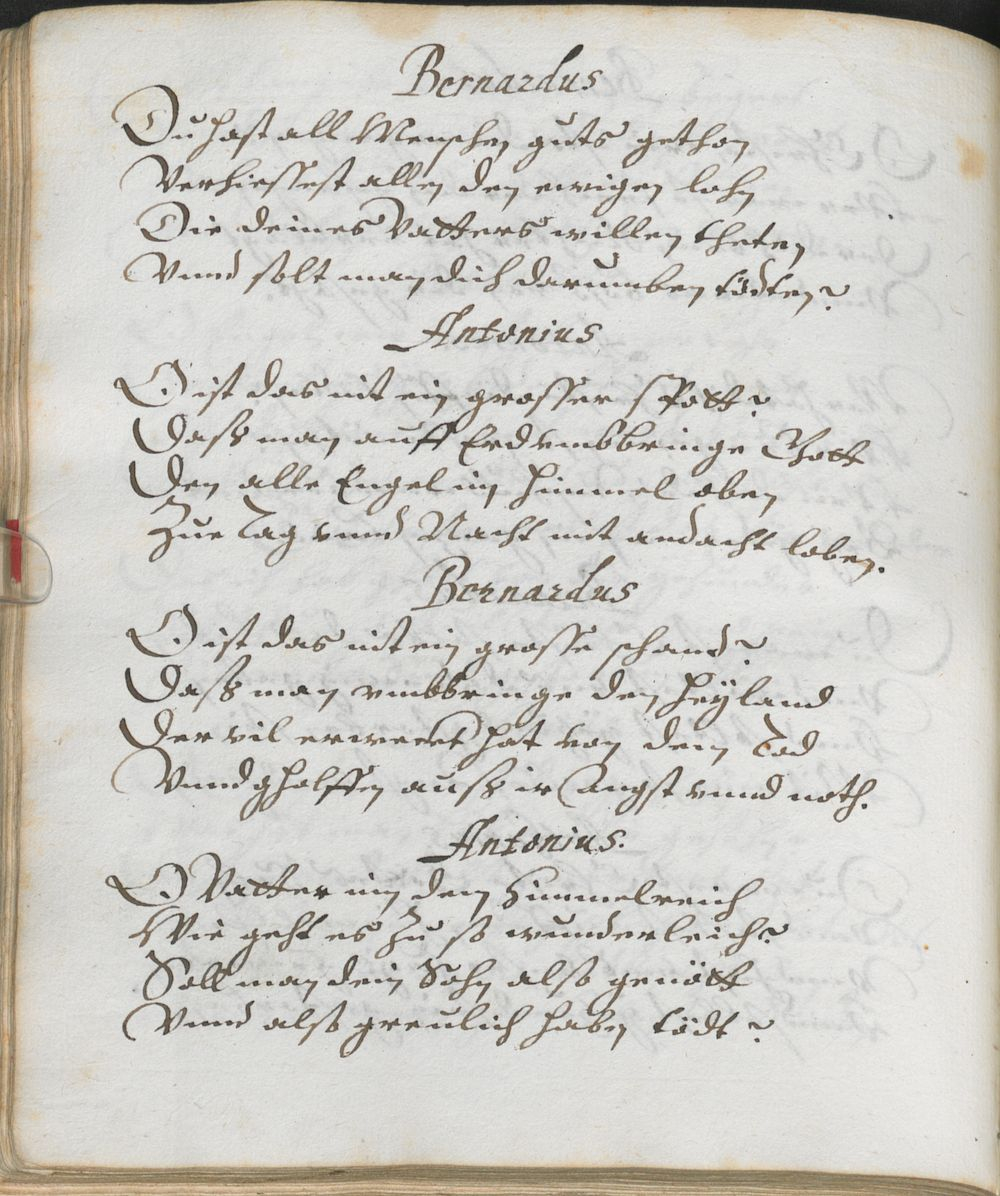 Bernardus
Du hast all Menschen guts gethon
Verhiessest allen den ewigen lohn
Die deines Vatters willen theten
Vnnd solt man dich darumben tödten?
Antonius
O ist das nit ein grosser spott?
Dasz man auff Erd vmbbringe Gott
Den alle Engel im himmel oben
Zue Tag vnnd Nacht mit andacht loben.
Bernardus
O ist das nit ein grosse schand?
Dasz man vmbbringe den heyland
Der vil erweckt hat von dem Tod
Vnnd gholffen ausz ir Angst vnnd noth.
Antonius.
O Vatter im dem Himmelreich
Wie geht es zu so wunderleich?
Soll man dein Sohn also genött
Vnnd also greulich haben tödt?